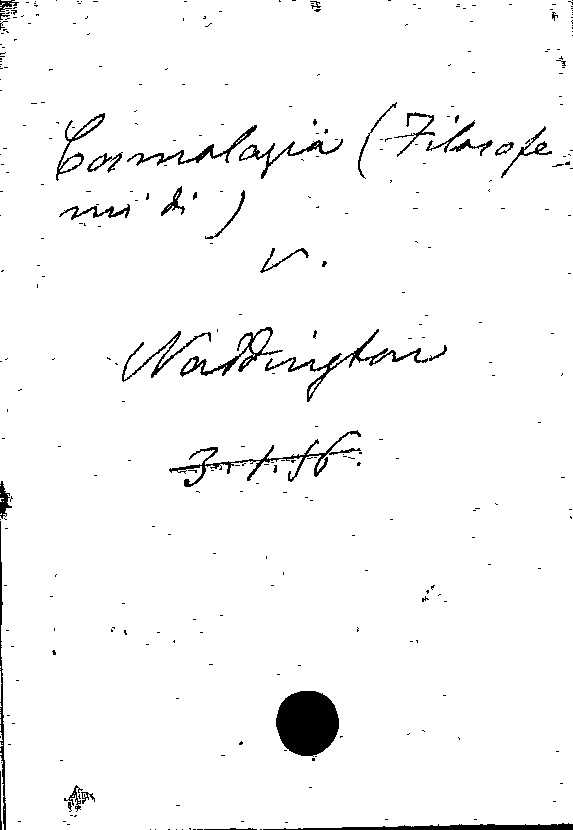 Cosmologia (Filosofe-
mi di)
v.
Waddington
3.1.56.